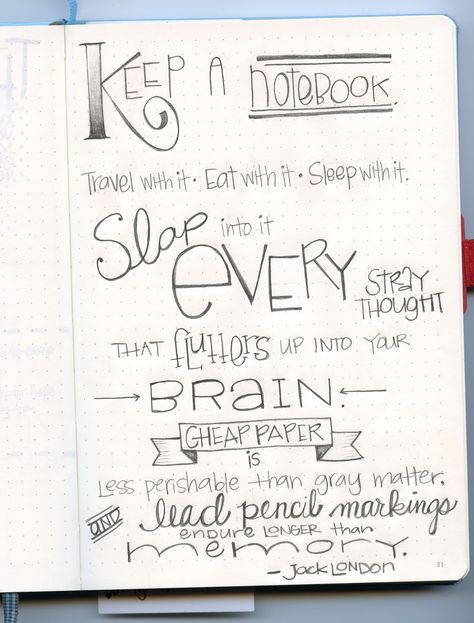 KEEP A NOTEBOOK.
Travel with it · Eat with it · Sleep with it.
Slap into it
EVERY STRAY THOUGHT
THAT flutters UP INTO YOUR
BRAIN.
CHEAP PAPER
is
Less perishable than gray matter,
AND lead pencil markings
endure LONGER than
memory.
— Jack LONDON
51